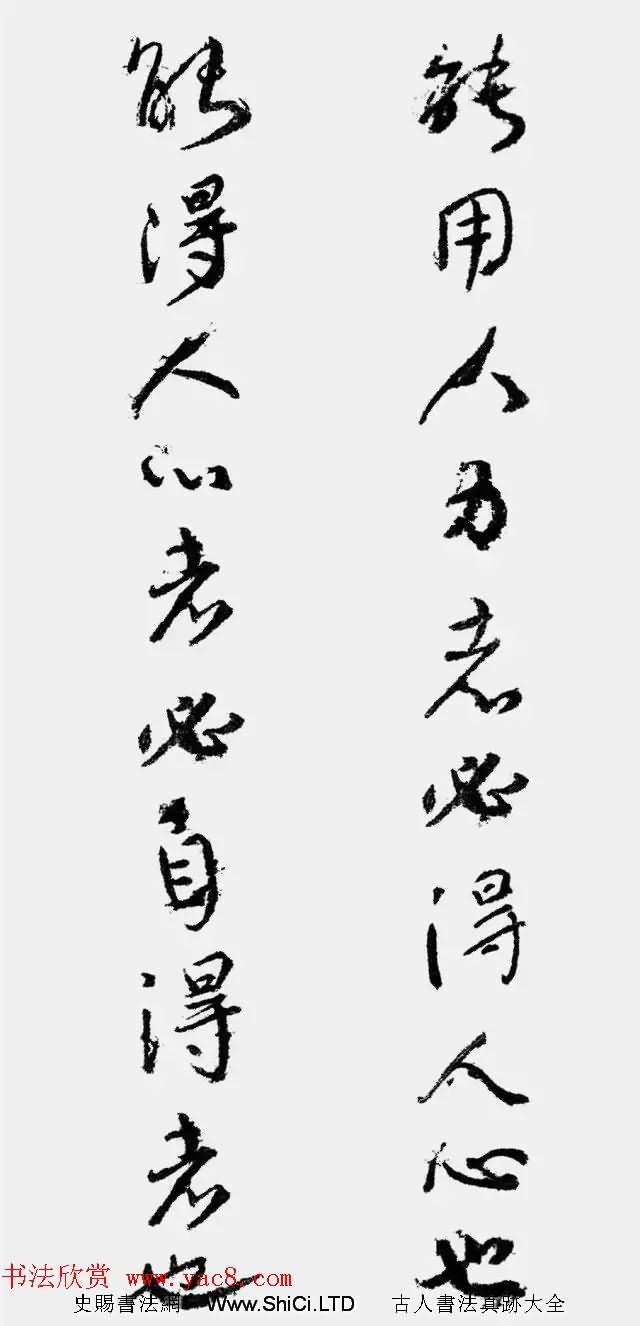 能用人力者必得人心也
能得人心者必自得者也
书法欣赏 www.yac8.com
史賜書法網 Www.ShiCi.LTD 古人書法真跡大全